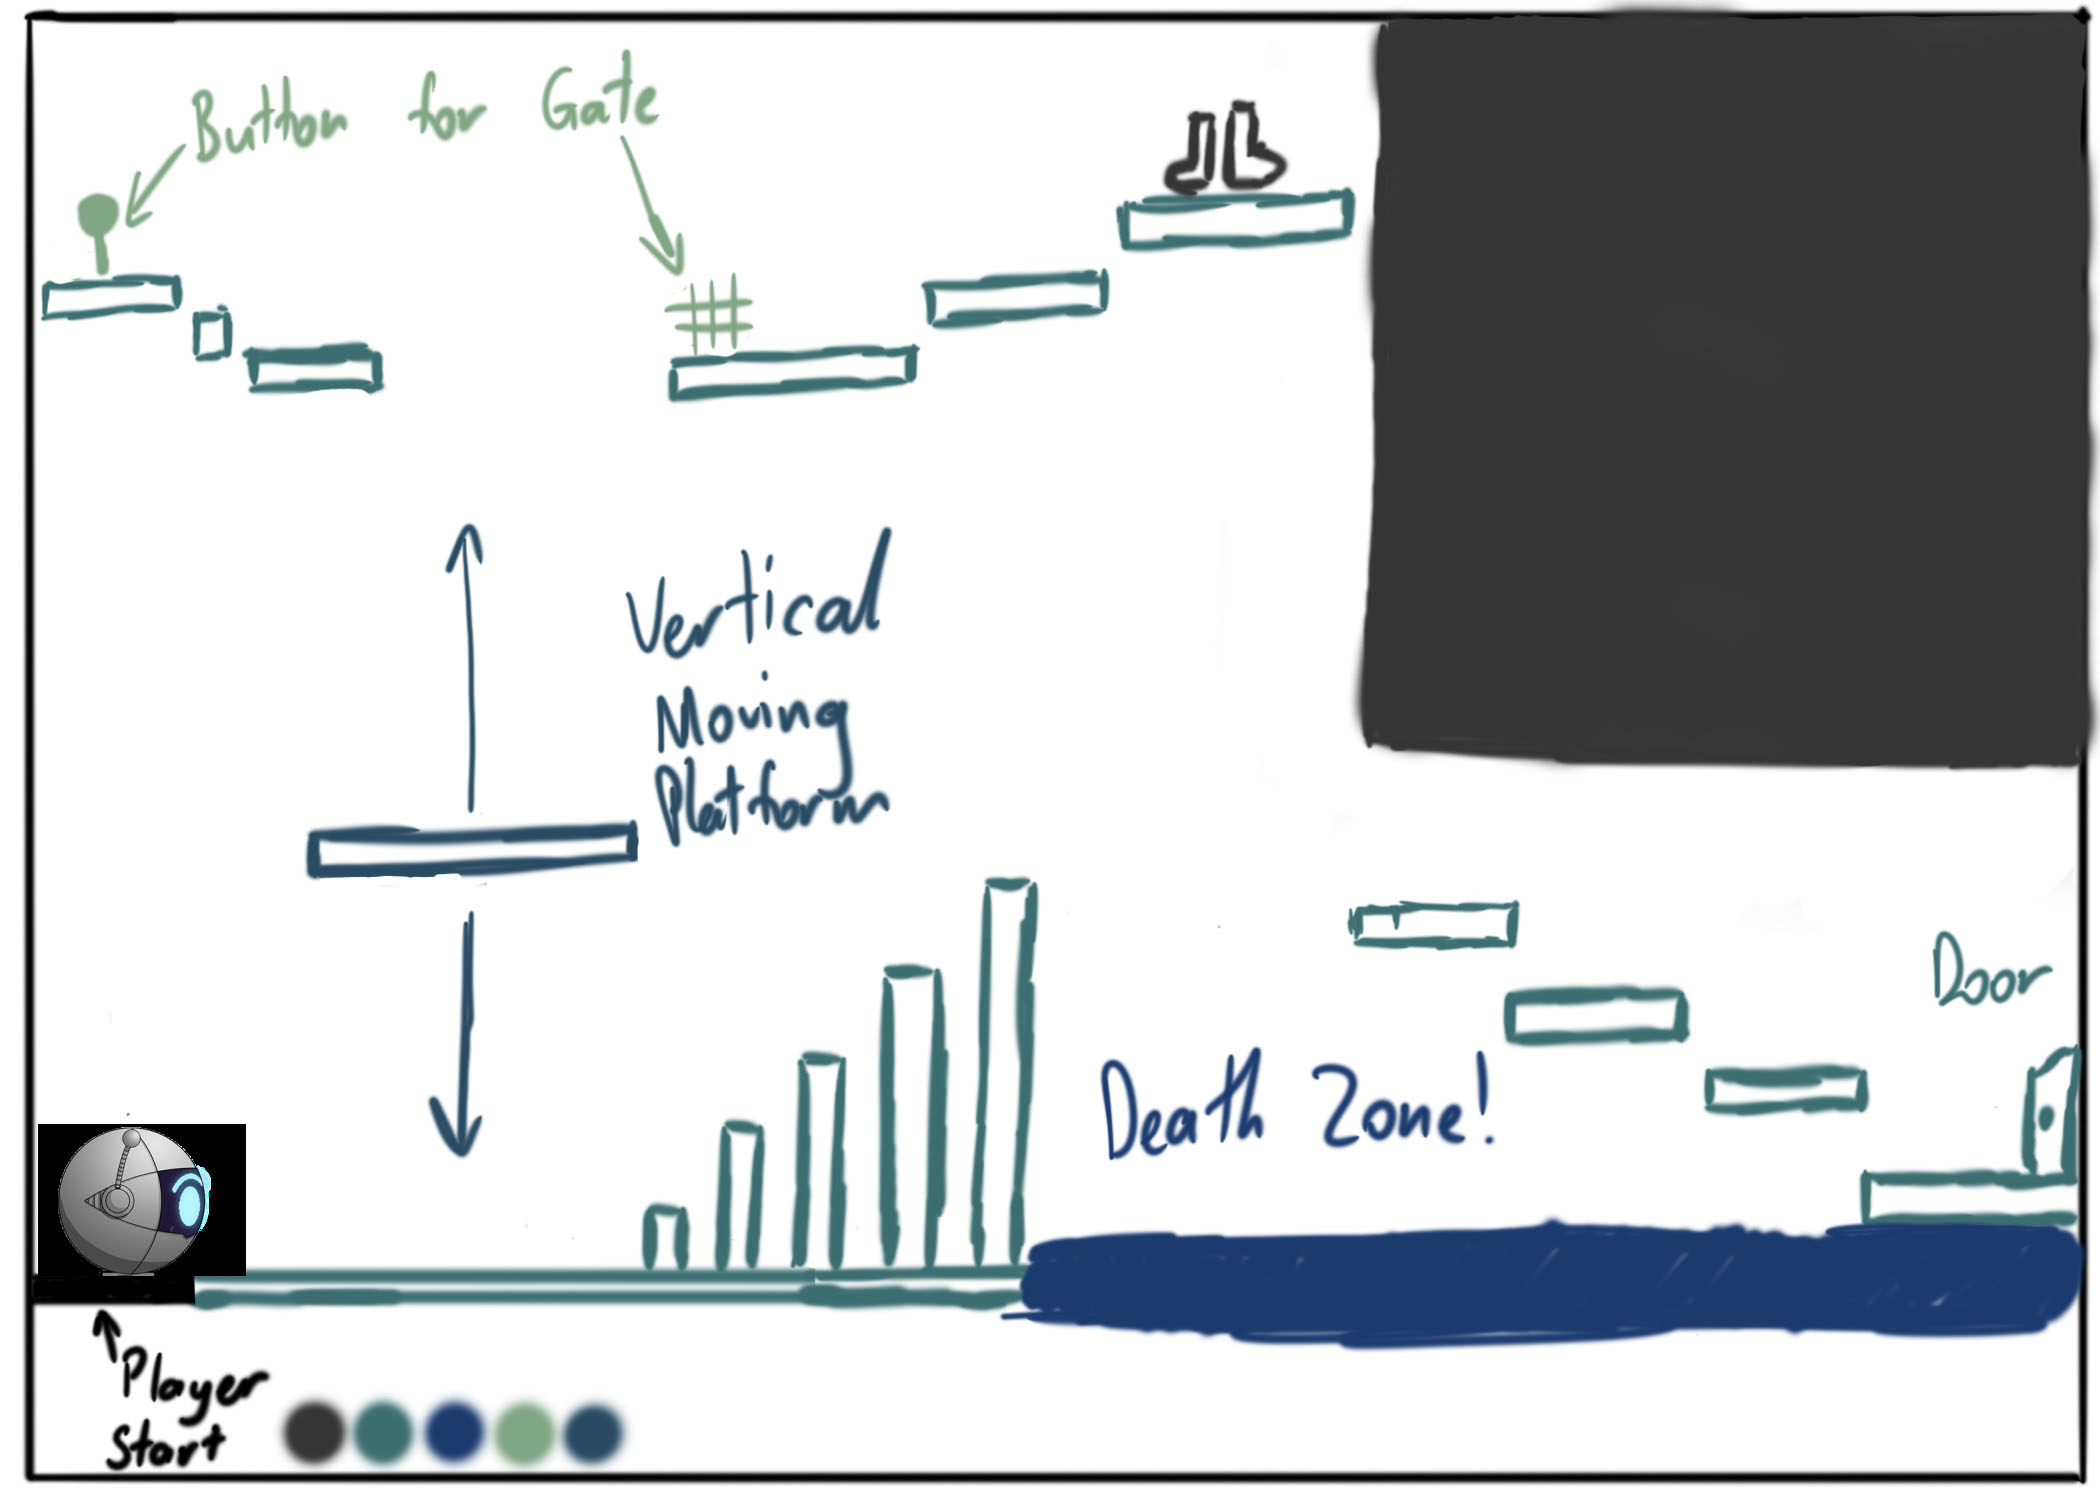 Button for Gate
Vertical
Moving
Platform
Door
Death Zone!
Player
Start